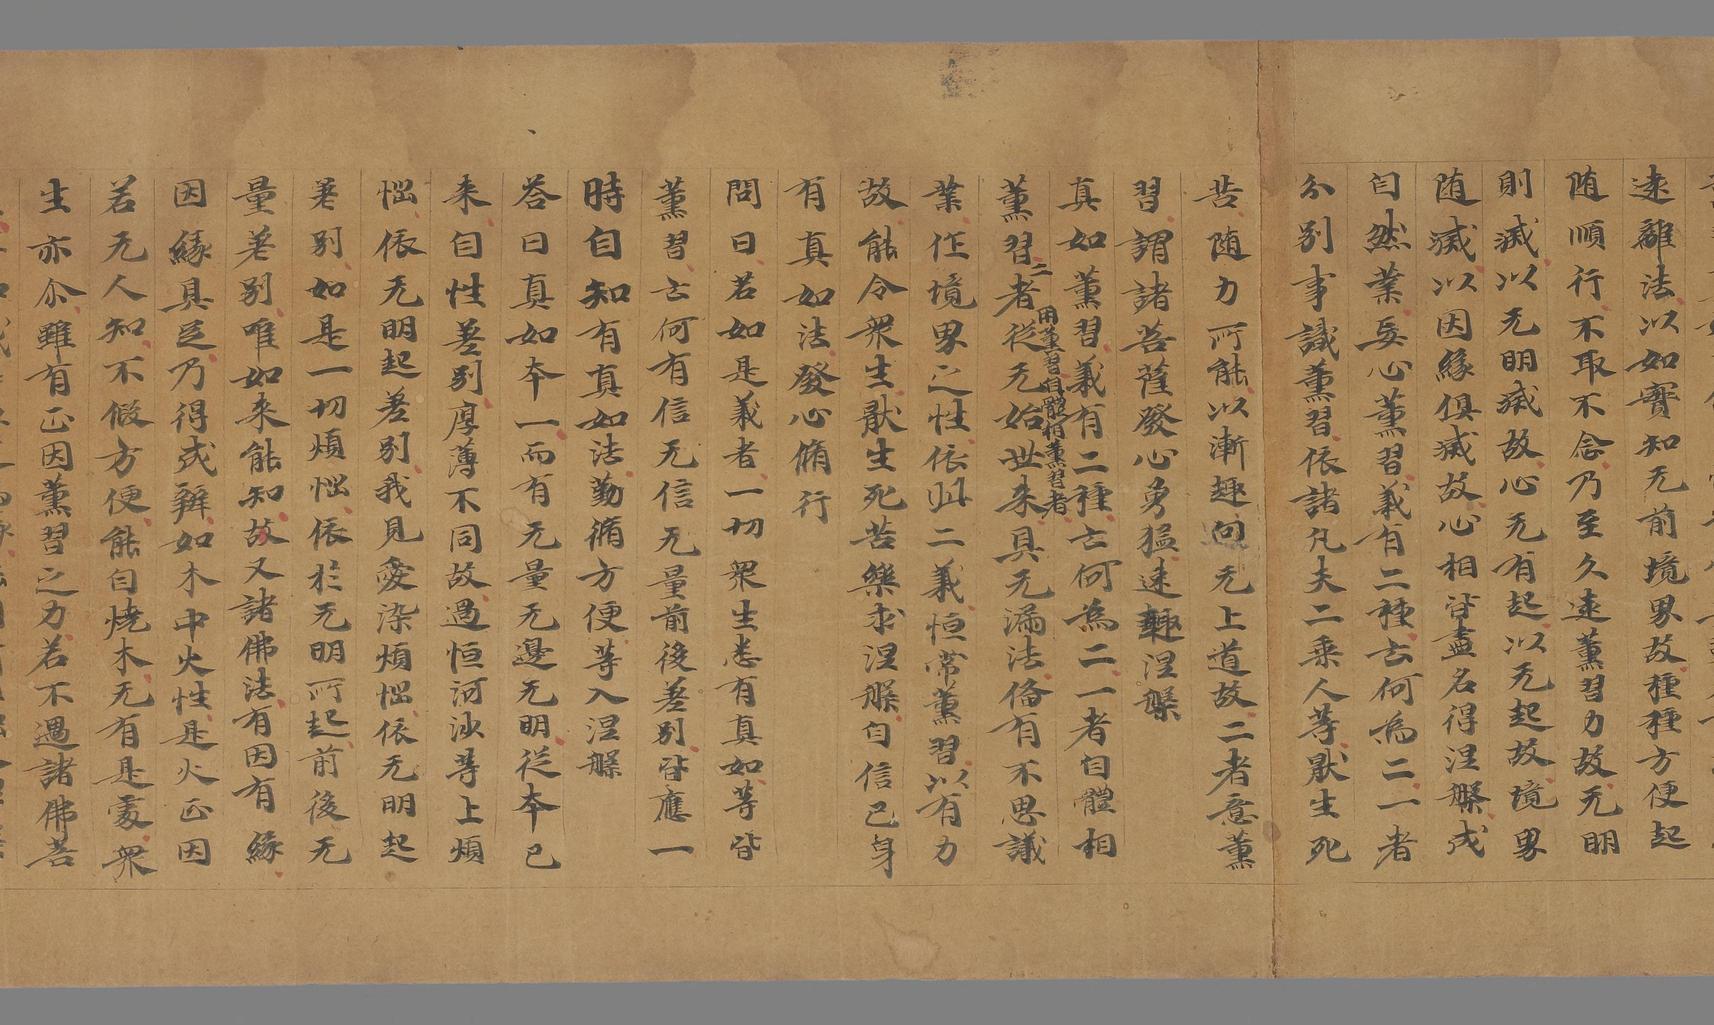 遠離法以如實知无前境界故種種方便起
随順行不取不念乃至久遠薫習力故无明
則滅以无明滅故心无有起以无起故境界
随滅以因緣俱滅故心相皆盡名得涅槃成
自然業妄心薫習義有二種云何為二一者
分别事識薫習依諸凡夫二乗人等猒生死
苦随力所能以漸趣向无上道故二者意薫
習謂諸菩薩發心勇猛速趣涅槃
真如薫習義有二種云何為二一者自體相
二用薫習自體相薫習者
薫習者従无始世来具无漏法俻有不思議
業作境界之性依此二義恒常薫習以有力
故能令衆生猒生死苦樂求涅槃自信己身
有真如法發心脩行
問曰若如是義者一切衆生悉有真如等皆
薫習云何有信无信无量前後差别皆應一
時自知有真如法勤脩方便等入涅槃
答曰真如本一而有无量无邊无明従本已
来自性差别厚薄不同故過恒河沙等上煩
惱依无明起差别我見愛染煩惱依无明起
差别如是一切煩惱依於无明所起前後无
量差别唯如来能知故又諸佛法有因有緣
因緣具足乃得成辦如木中火性是火正因
若无人知不假方便能自燒木无有是處衆
生亦尒雖有正因薫習之力若不遇諸佛菩